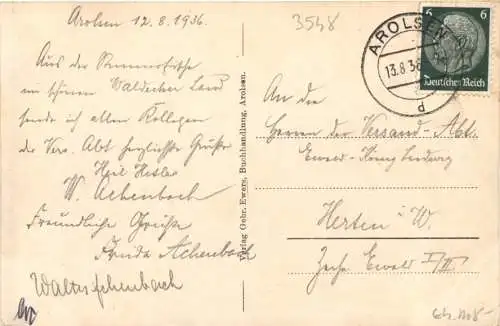 Arolsen 12.8.1936.
Aus der Sommerfrische
im schönen Waldecker Land
sende ich allen Kollegen
der Vers. Abt herzlichste Grüße
Heil Hitler
W. Achenbach
Freundliche Grüße
Frieda Achenbach
Walter Achenbach
Verlag Gebr. Ewers, Buchhandlung, Arolsen.
3548
AROLSEN
13.8.36
d
6
6
Deutsches Reich
An die
Herren der Versand-Abt.
Ewald-König Ludwig
Herten i. W.
Zeche Ewald I/II